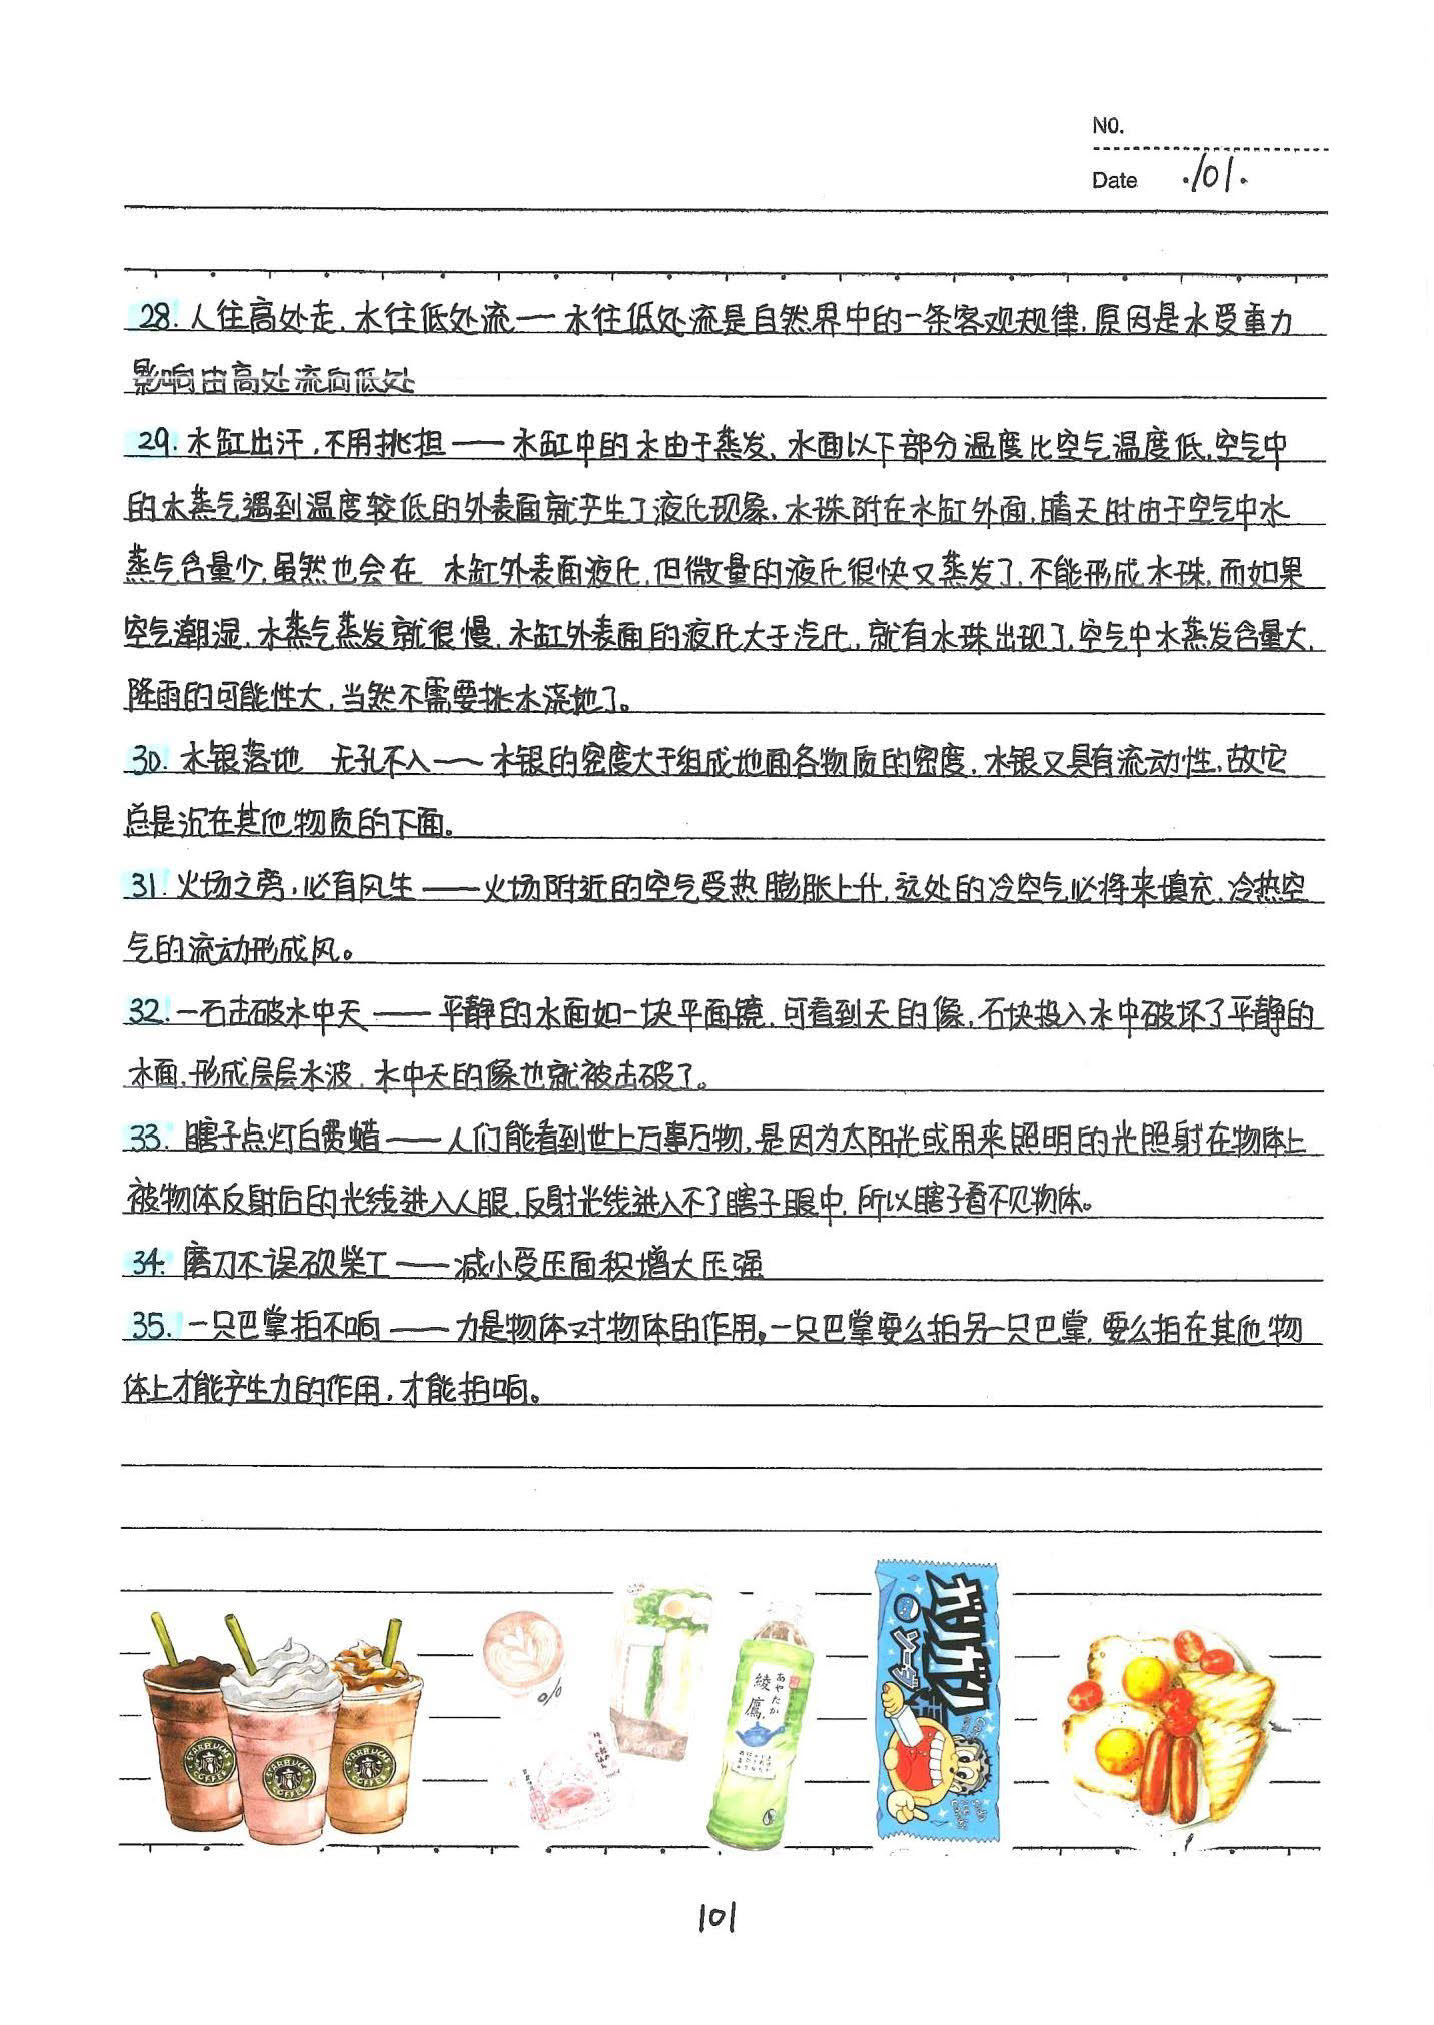 NO.
Date ·101·
28. 人往高处走,水往低处流——水往低处流是自然界中的一条客观规律,原因是水受重力
影响由高处流向低处
29. 水缸出汗,不用挑担——水缸中的水由于蒸发,水面以下部分温度比空气温度低,空气中
的水蒸气遇到温度较低的外表面就产生了液化现象,水珠附在水缸外面,晴天时由于空气中水
蒸气含量少,虽然也会在 水缸外表面液化,但微量的液化很快又蒸发了,不能形成水珠,而如果
空气潮湿,水蒸气蒸发就很慢,水缸外表面的液化大于汽化,就有水珠出现了,空气中水蒸发含量大,
降雨的可能性大,当然不需要挑水浇地了。
30. 水银落地 无孔不入——水银的密度大于组成地面各物质的密度,水银又具有流动性,故它
总是沉在其他物质的下面。
31. 火场之旁,必有风生——火场附近的空气受热膨胀上升,远处的冷空气必将来填充,冷热空
气的流动形成风。
32. 一石击破水中天——平静的水面如一块平面镜,可看到天的像,石块投入水中破坏了平静的
水面,形成层层水波,水中天的像也就被击破了。
33. 瞎子点灯白费蜡——人们能看到世上万事万物,是因为太阳光或用来照明的光照射在物体上
被物体反射后的光线进入人眼,反射光线进入不了瞎子眼中,所以瞎子看不见物体。
34. 磨刀不误砍柴工——减小受压面积增大压强
35. 一只巴掌拍不响——力是物体对物体的作用。一只巴掌要么拍另一只巴掌,要么拍在其他物
体上才能产生力的作用,才能拍响。
STARBUCKS COFFEE
STARBUCKS COFFEE
STARBUCKS COFFEE
%
あやたか
綾鷹
ガリガリ君
ソーダ
101